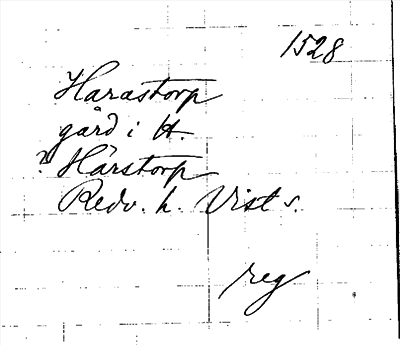 1528
Harastorp
gård i H.
? Hårstorp
Redv. h. Vist s.
reg